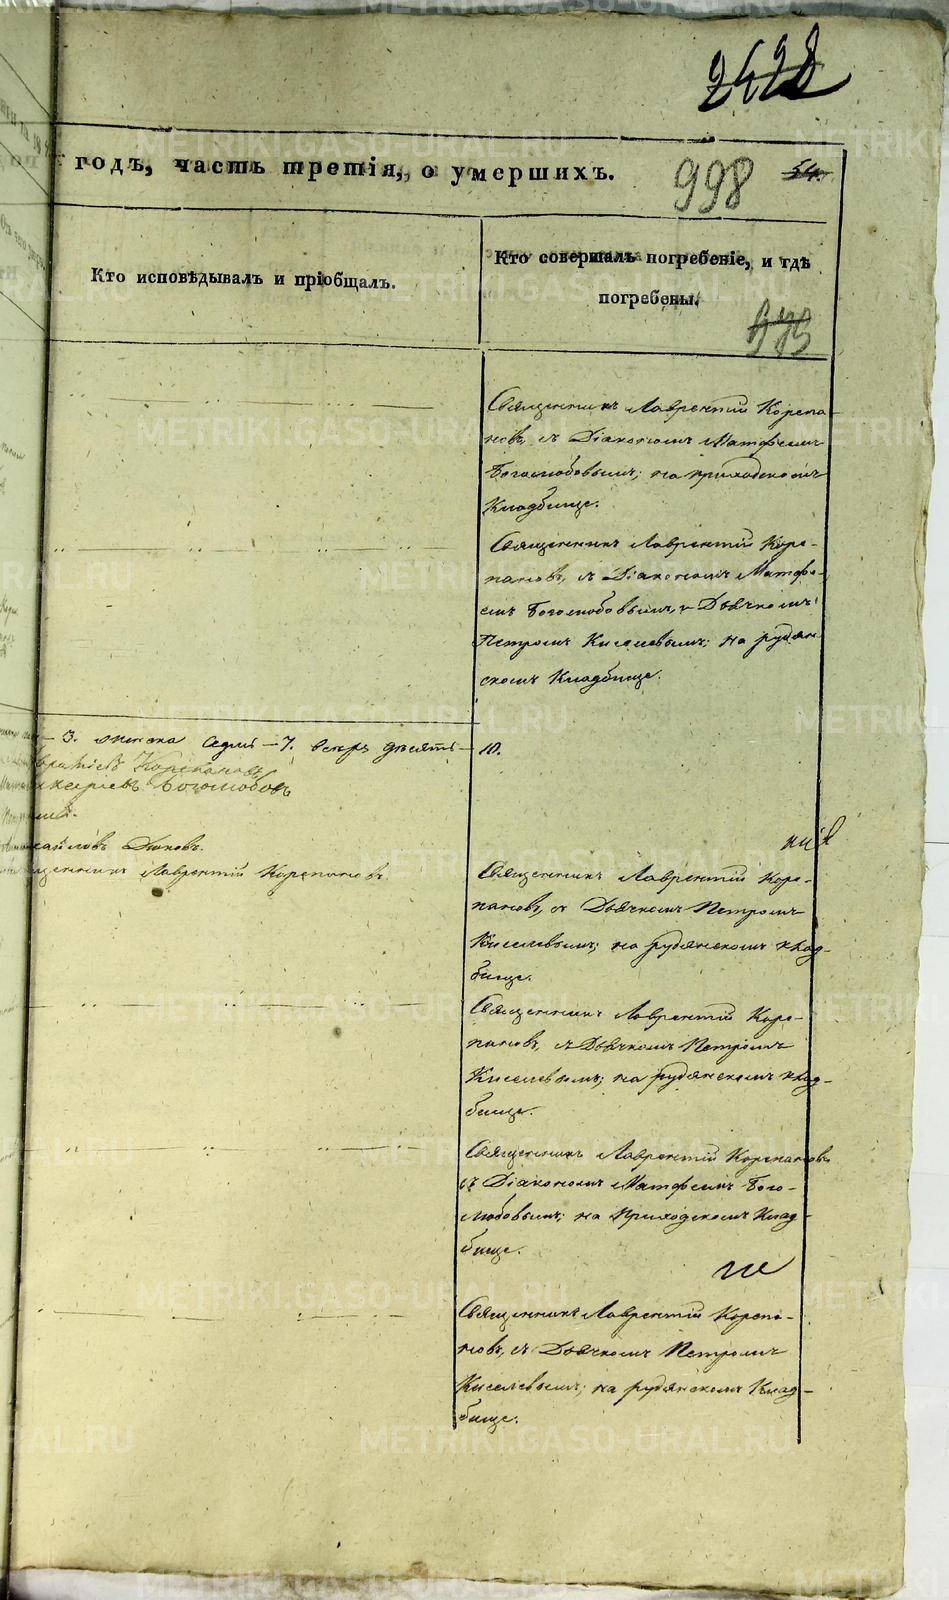 2428
годъ, часть третія, о умершихъ.
998
54.
Кто исповѣдывалъ и пріобщалъ.
Кто совершалъ погребеніе, и гдѣ
погребены.
Священникъ Лаврентій Корепа-
новъ, съ Діакономъ Матфеемъ
Боголюбовымъ; на приходскомъ
Кладбище.
Священникъ Лаврентій Коре-
пановъ, съ Діакономъ Матфе-
емъ Боголюбовымъ, и Дьячкомъ
Петромъ Киселевымъ; на рудян-
скомъ Кладбище.
— 3. женска седмь — 7. всехъ десять — 10.
Корепановъ
Боголюбовъ
Священникъ Лаврентій Корепановъ.
Священникъ Лаврентій Коре-
пановъ, съ Дьячкомъ Петромъ
Киселевымъ; на рудянскомъ клад-
бище.
Священникъ Лаврентій Коре-
пановъ, съ Дьячкомъ Петромъ
Киселевымъ; на рудянскомъ клад-
бище.
Священникъ Лаврентій Корепановъ
съ Діакономъ Матфеемъ Бого-
любовымъ; на Приходскомъ Клад-
бище.
Священникъ Лаврентій Корепа-
новъ, съ Дьячкомъ Петромъ
Киселевымъ; на рудянскомъ Клад-
бище.
METRIKI.GASO-URAL.RU